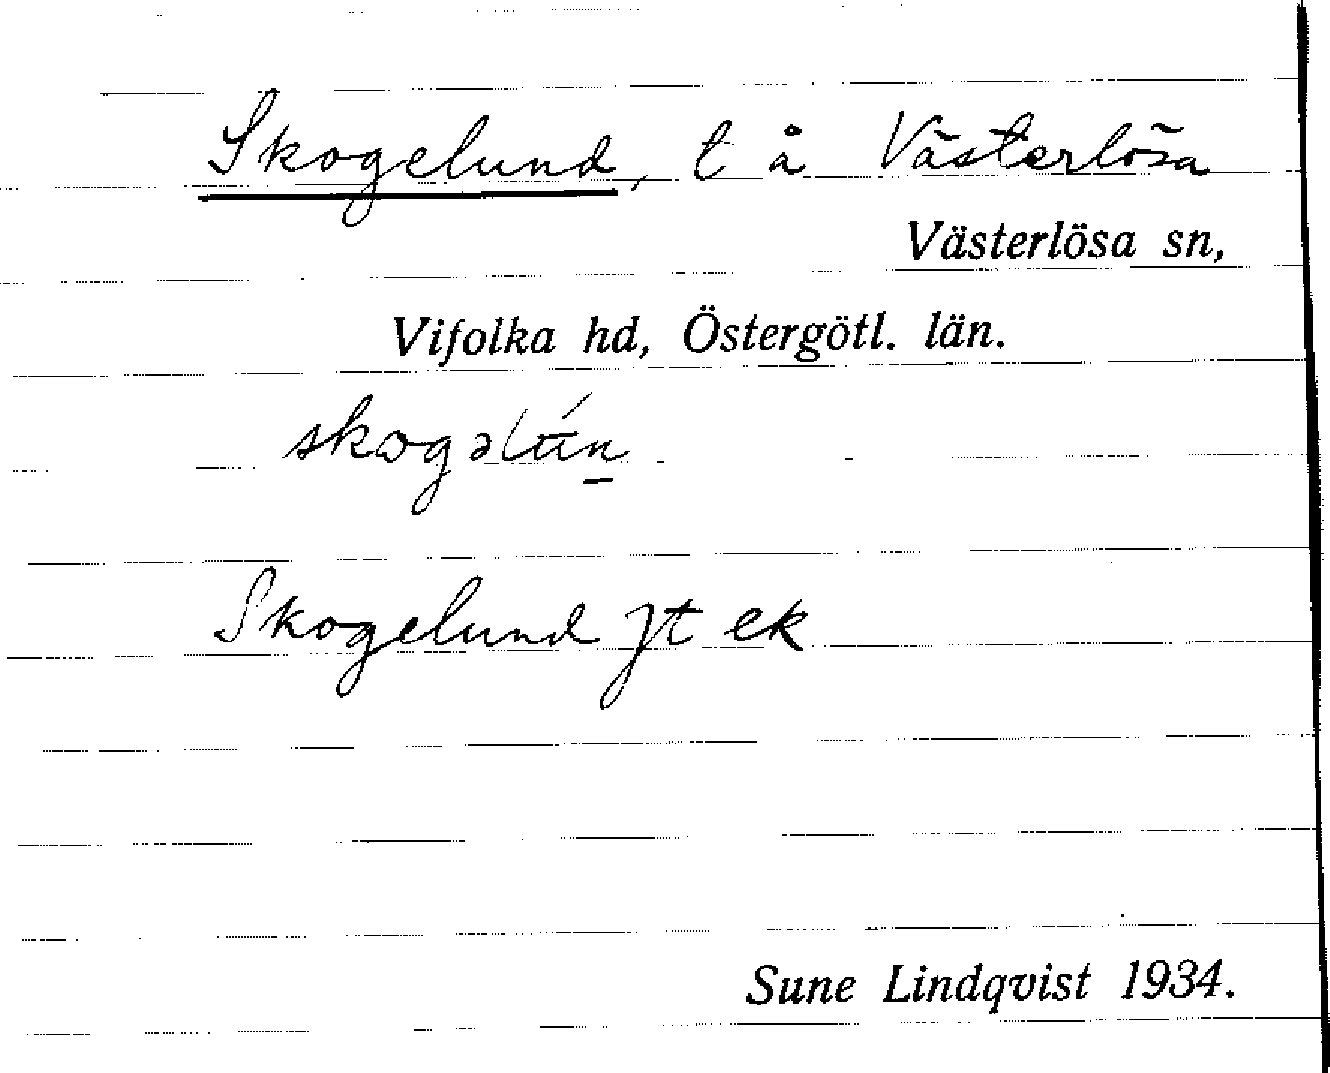 Skogelund, t å Västerlösa
Västerlösa sn,
Vifolka hd, Östergötl. län.
skogəlún
Skogelund jt ek
Sune Lindqvist 1934.